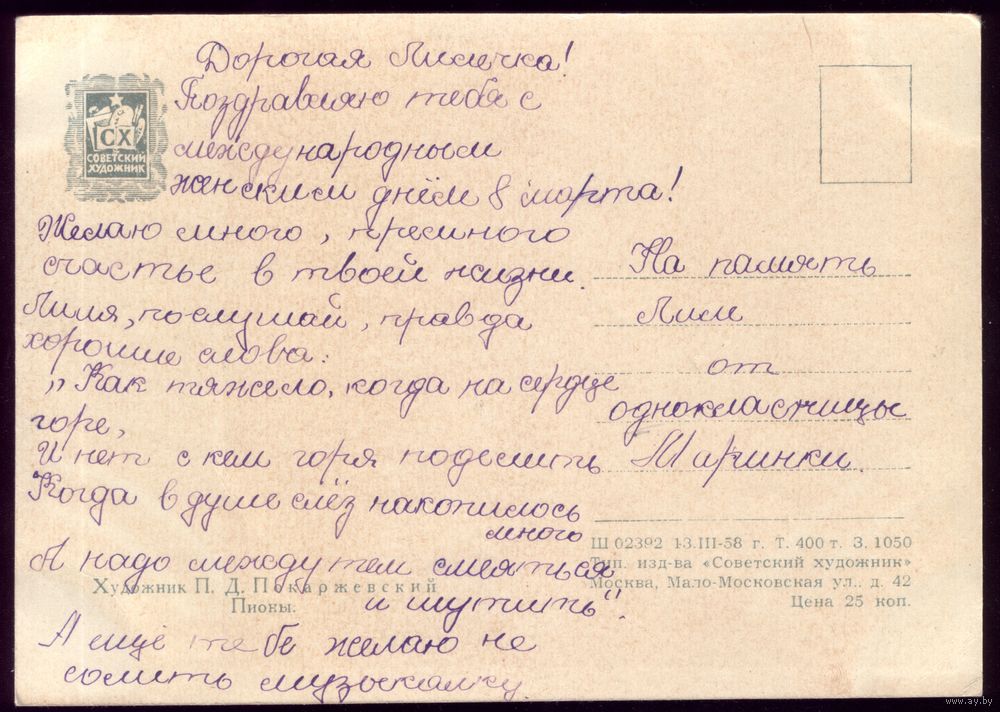 Дорогая Лилечка!
Поздравляю тебя с
международным
женским днём 8 марта!
Желаю много, премного
счастье в твоей жизни.
Лиля, послушай, правда
хорошие слова:
„Как тяжело, когда на сердце
горе,
И нет с кем горя поделить
Когда в душе слёз накопилось
много
А надо между тем смеяться
и шутить".
А ещё тебе желаю не
сомить музыкалку
СХ
СОВЕТСКИЙ
ХУДОЖНИК
На память
Лиле
от
однокластницы
Маринки.
Ш 02392 13.III-58 г. Т. 400 т. З. 1050
Тип. изд-ва «Советский художник»
Москва, Мало-Московская ул., д. 42
Цена 25 коп.
Художник П. Д. Покаржевский
Пионы.
www.ay.by